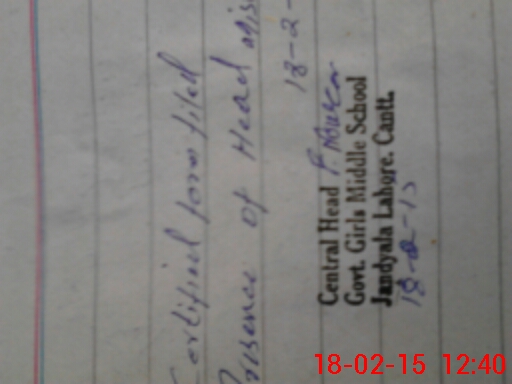 Certified form filed
Presence of Head Mis
18-2-
Central Head
Govt. Girls Middle School
Jandyala Lahore. Cantt.
18-2-15
18-02-15 12:40